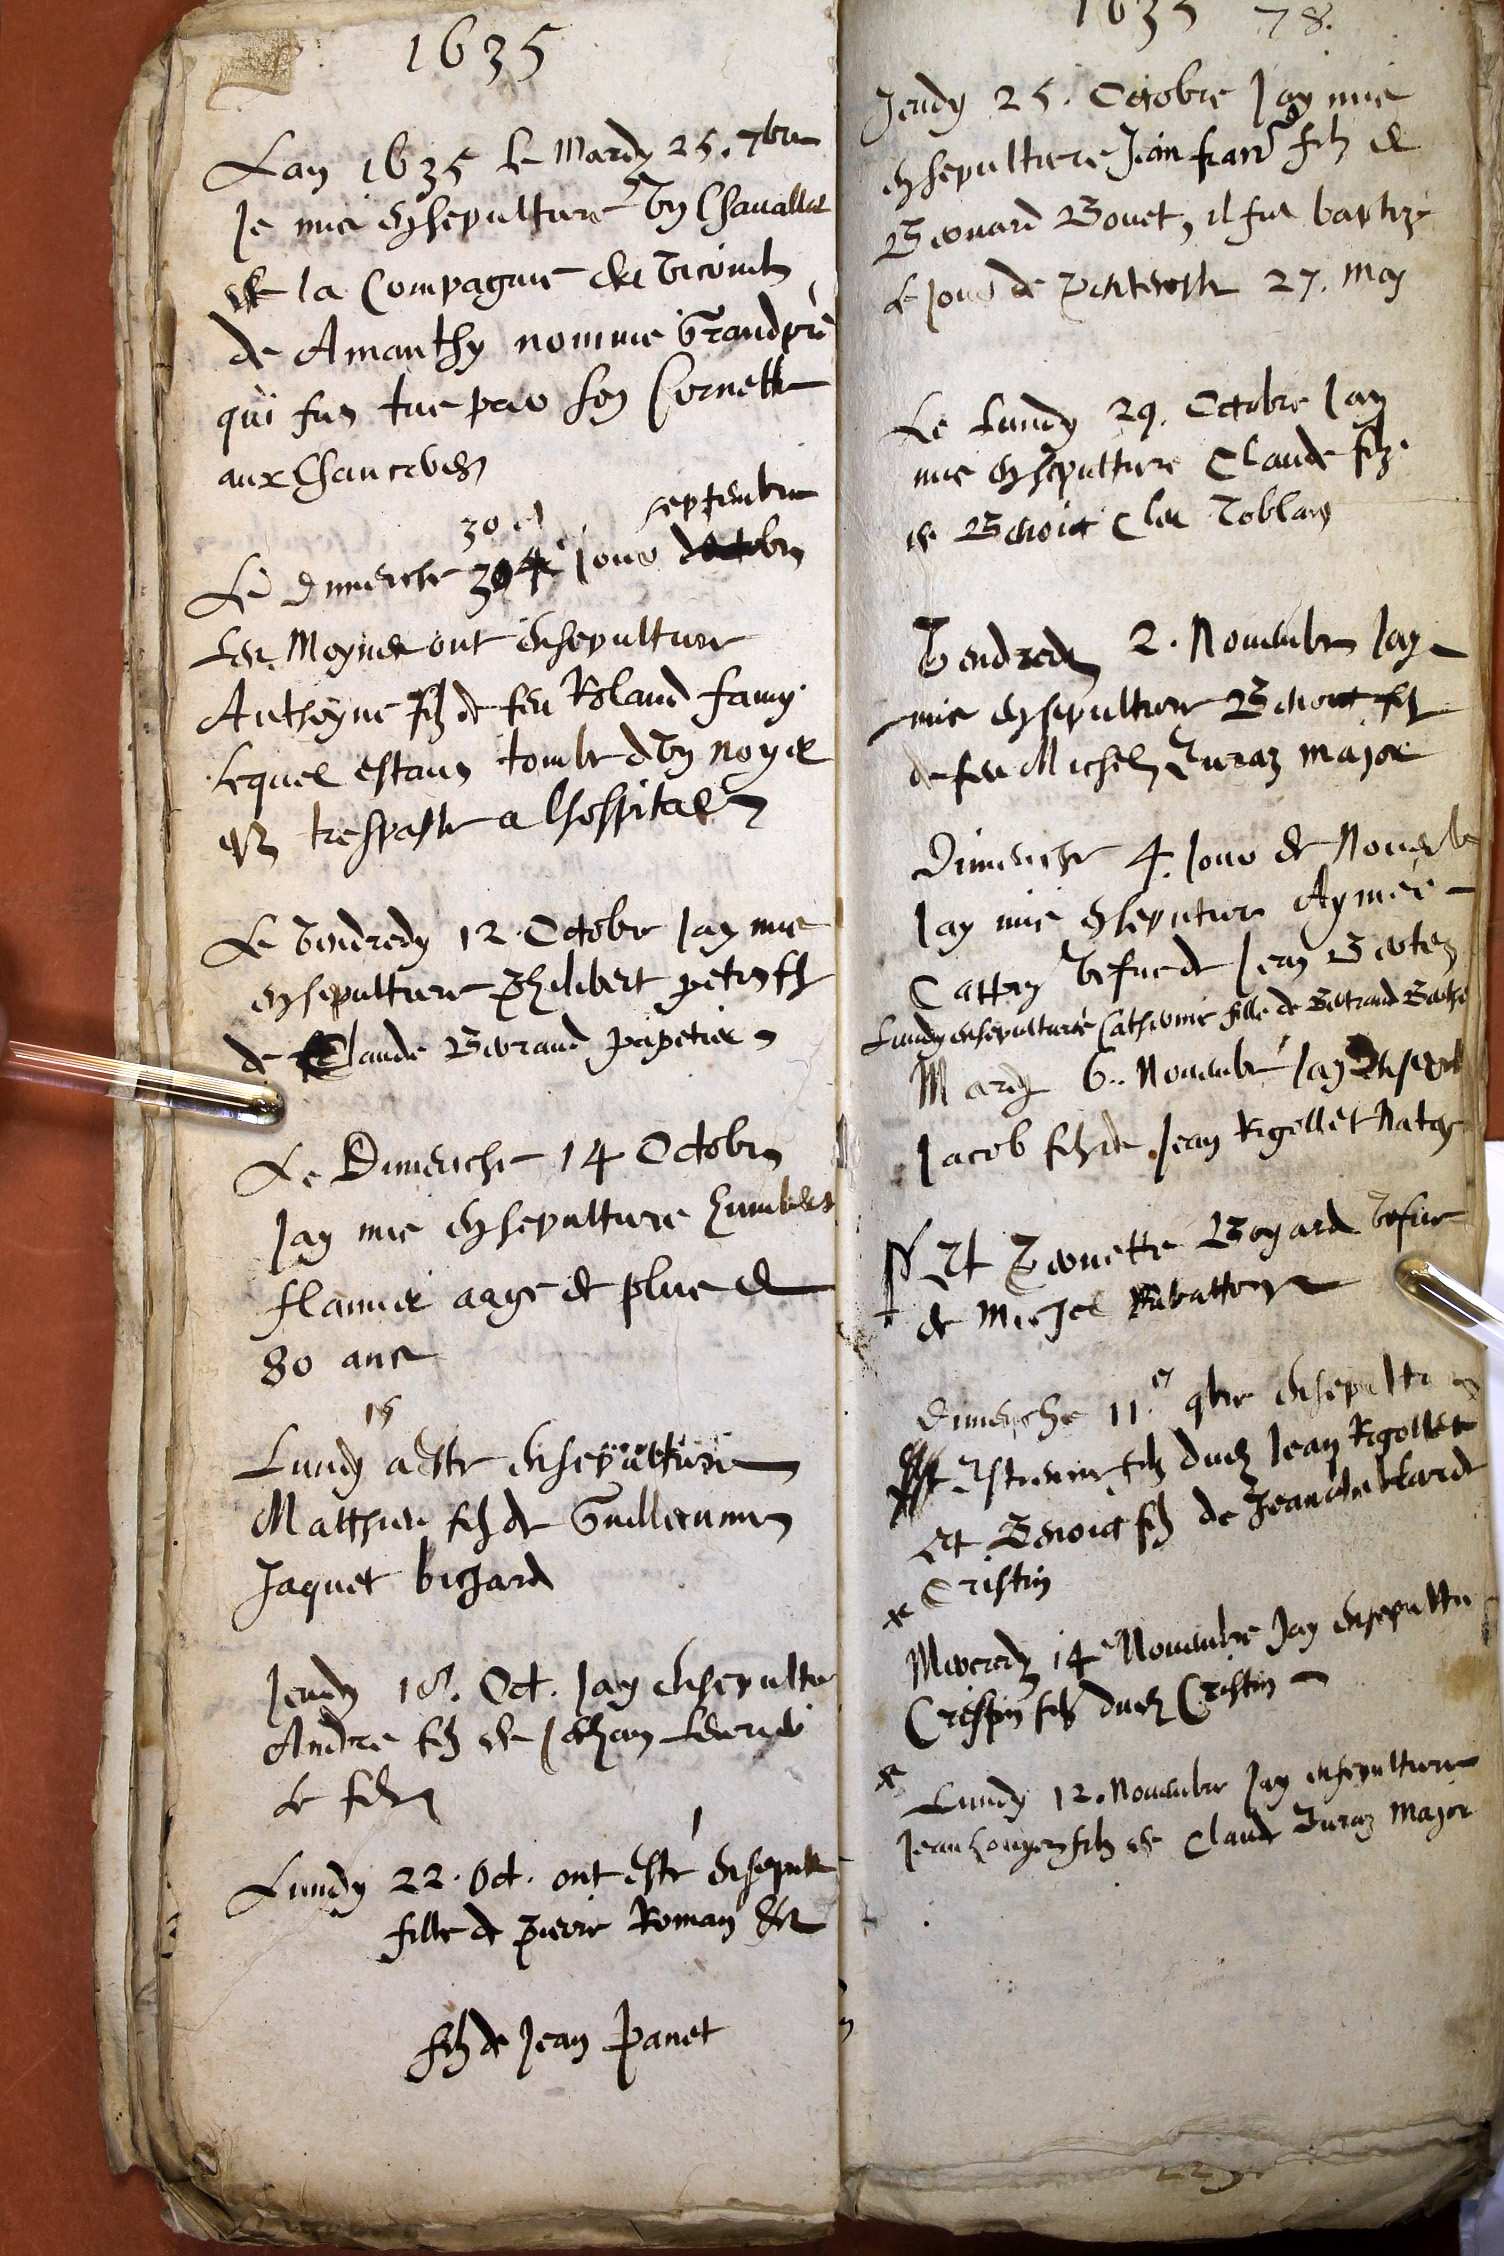 1635
Lan 1635 le Mardy 25. 7bre
Je mis en sepulture un Chavallet
de la Compagnie du Viconte
de Amanthy nomme Grandprè
qui fut tue par son Cornette
aux Chanceves
30e septembre
Le Dimenche jour doctobre
Les Moynes ont ensepulture
Anthoyne fils de feu Roland Famy
lequel estant tombe dun noyer
est trespasse a lhospital
Le Vendredy 12 Octobre Jay mis
en sepulture Philibert petit filz
de Claude Beroraud papetier
Le Dimenche 14 Octobre
Jay mis en sepulture humbert
flamier aage de plus de
80 ans
15
Lundy a este ensepulture
Matthieu filz de Guillermin
Jaquet bichard
Jeudy 18. Oct. Jay ensepulture
Andre filz de Jehan
le filz
Lundy 22. Oct. ont esté ensepult
fille de pierre Roman &
filz de Jean Panet
1635 78.
Jeudy 25. Octobre Jay mis
en sepulture Jean fran filz de
Bernard Bovet, il fut baptizé
le jour de pentecoste 27. May
Le Lundy 29. Octobre Jay
mis en sepulture Claude filz
de Benoict Toblans
Vendredy 2. Novembre Jay
mis en sepulture Benoict filz
de feu Michel Juraz major
Dimenche 4. Jour de Novembre
Jay mis en sepulture Aymée
Cattin vefue de Jean
Lundy ensepulture Catherine fille de Bertrand
Mardy 6. Novembre Jay ensepul
Jacob filz de Jean Rigollet
Et Pernette Boyard vefue
de Michel
Dimenche 11e 9bre ensepulture
Estienne filz dudit Jean Rigollet
Et Benoict filz de
Cristin
Mercredy 14e Novembre Jay ensepultu
Crespin filz dudit Cristin
Lundy 12. Novembre Jay ensepulture
Jean filz de Claude Juraz Major